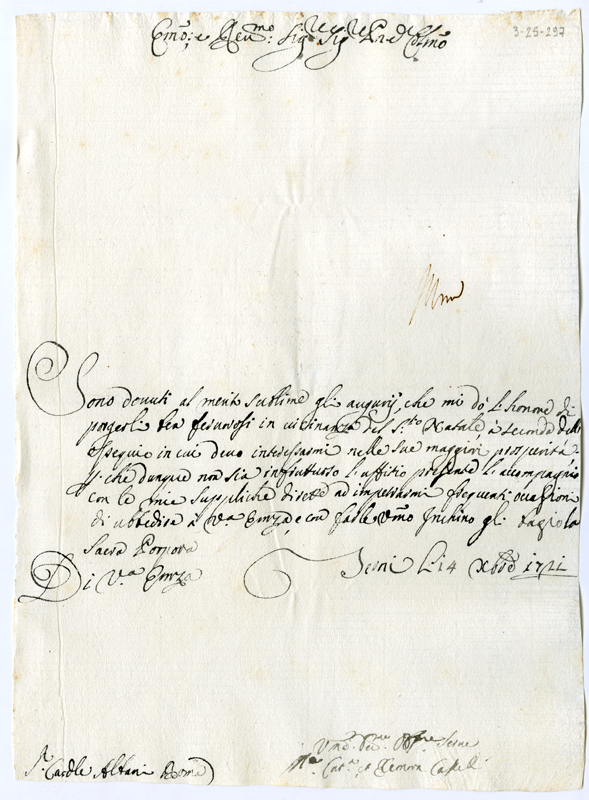 3-25-297
Emo: e Reumo: Sigre Sigre Prone Colmo
Sono douuti al merito sublime gli augurij, che mi dò l'honore di
porgerle ben feruorosi in vicinanza del S.to Natale, à seconda dell
ossequio in cui deuo interessarmi nelle sue maggiori prosperità.
che dunque non sia infruttuoso l'uffitio presente l'accompagnio
con le mie suppliche dirette ad impetrarmi frequenti occasioni
di ubbedire a V.a Emza, e con farle Vmo Inchino gli bagio la
Sacra Porpora
Di V.a Emza Terni li 14 Xbre 1721
Sr. Cardle Albani Roma
Vmo. Seruo